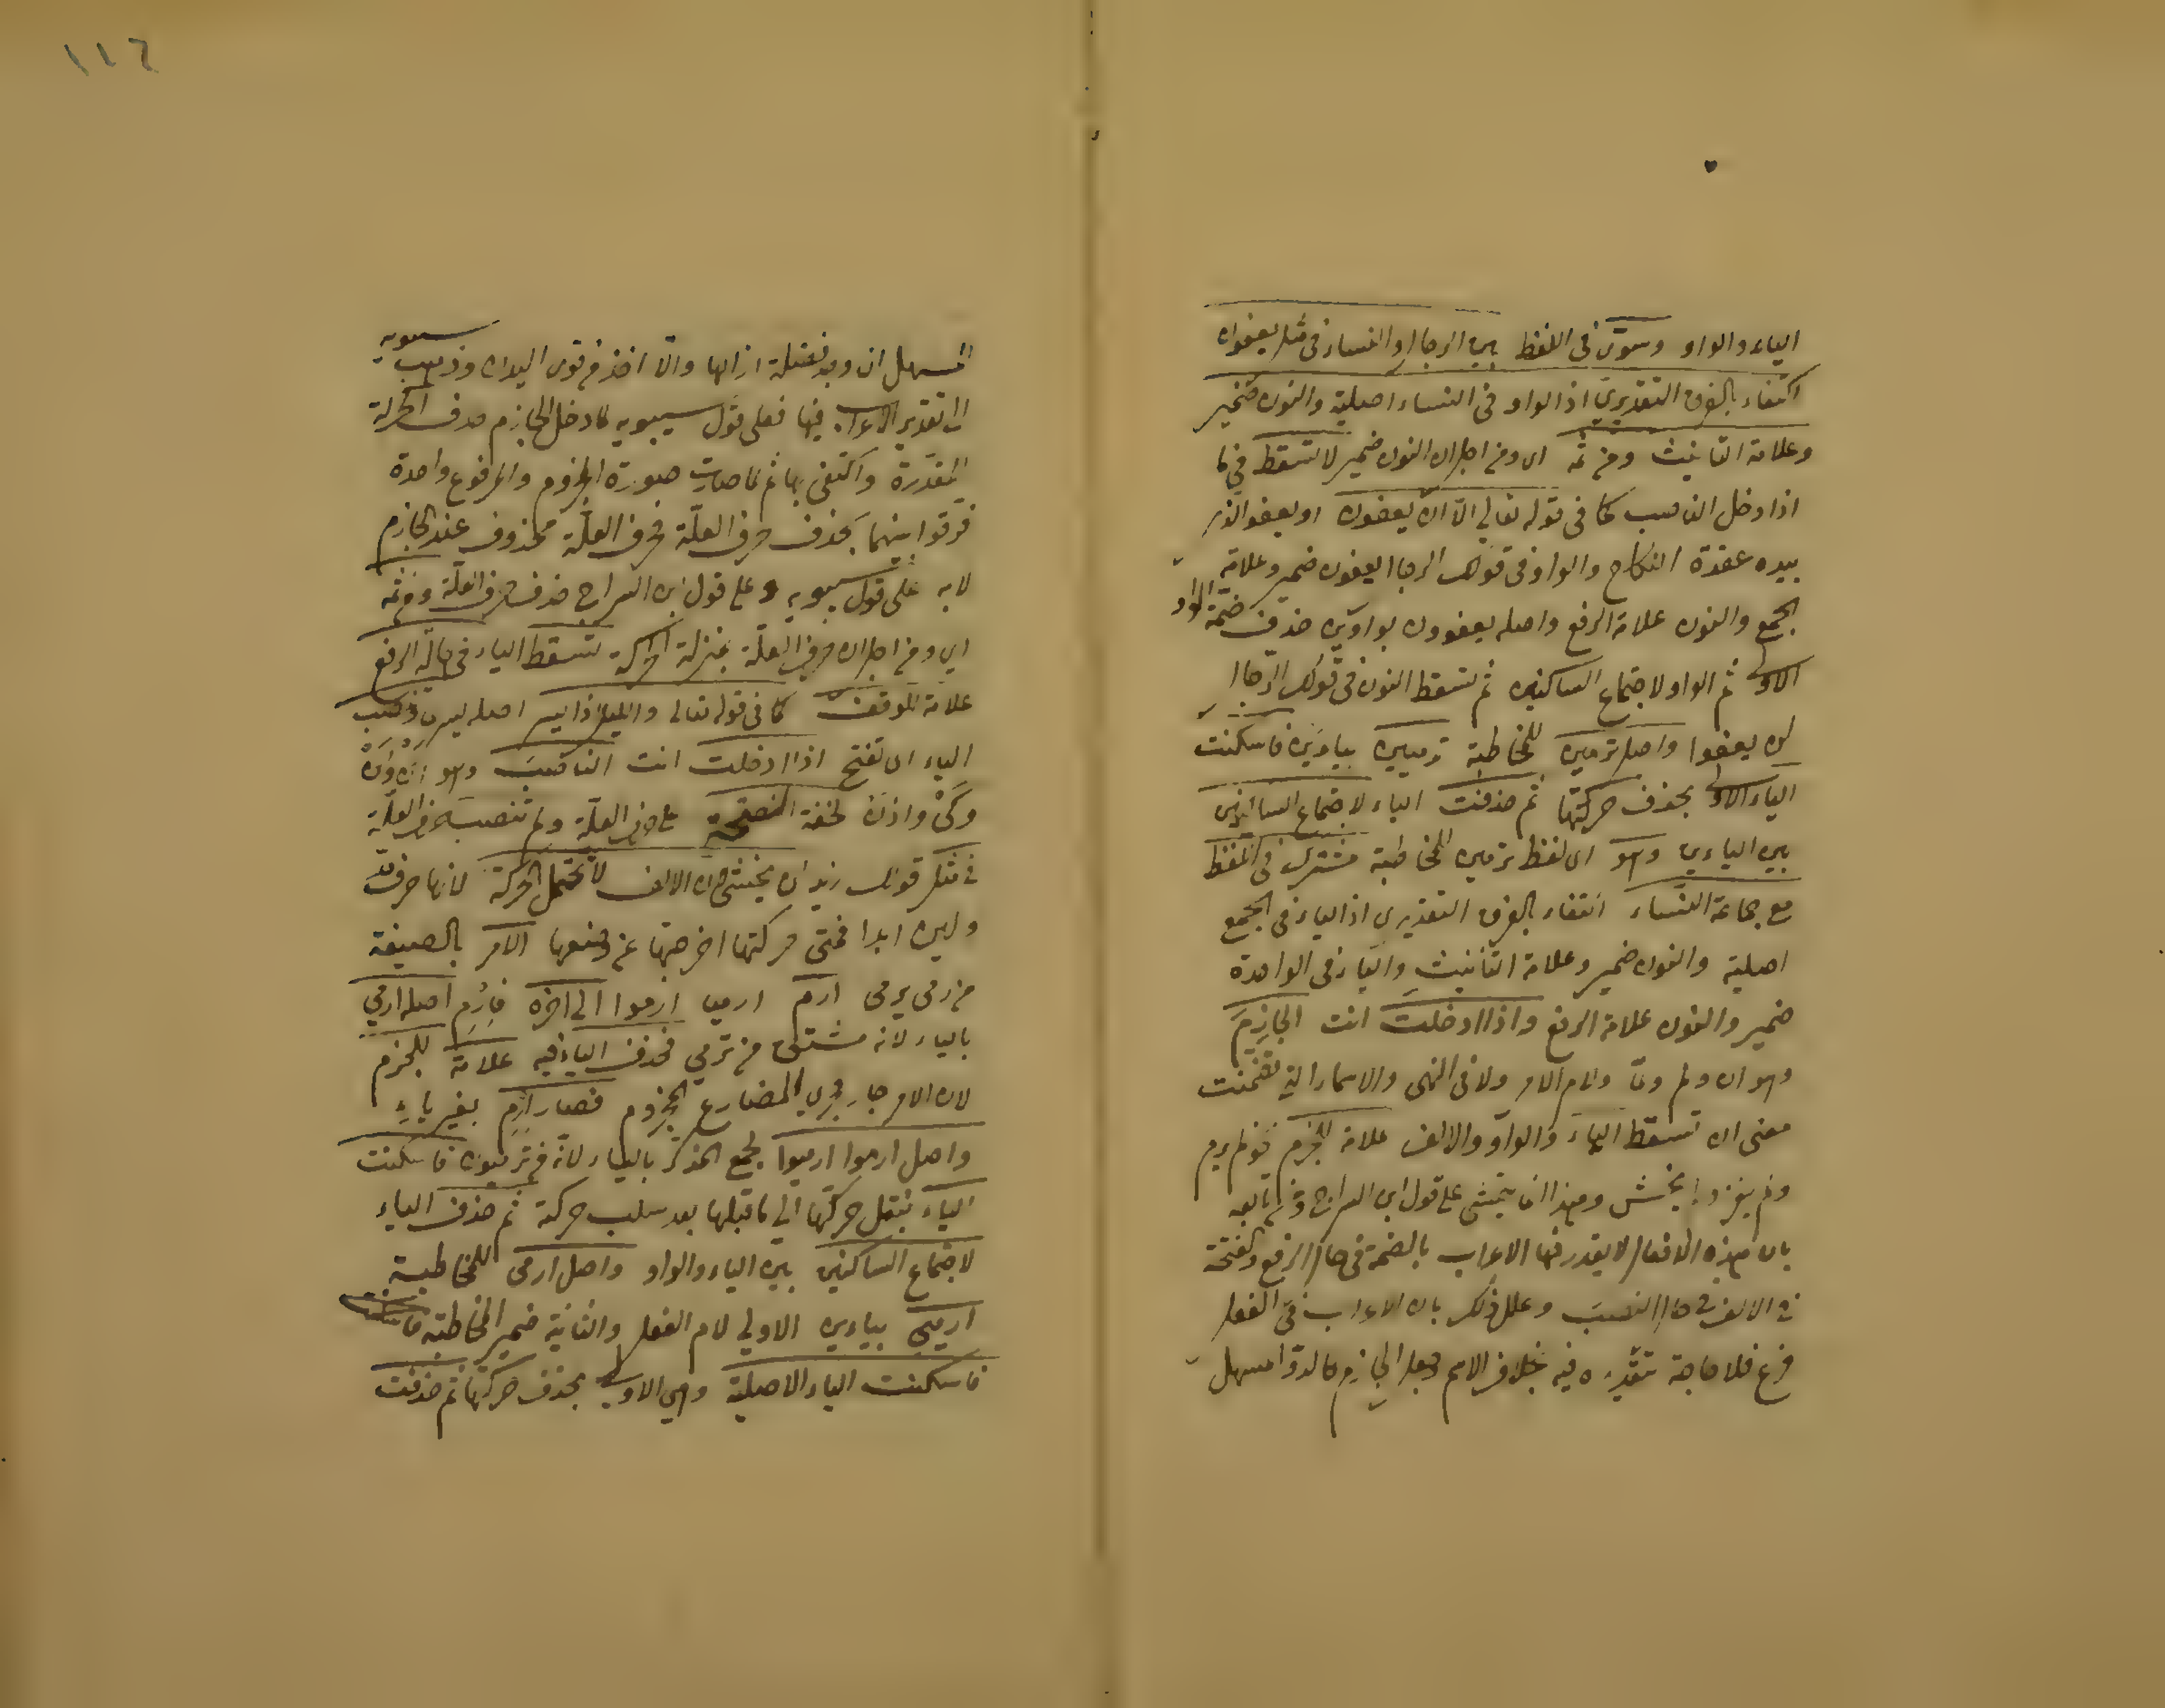 الياء والواو وسوّى في اللفظ بين الرجال والنساء في مثل يعفوان
اكتفاء بالفرق التقديري اذ الواو في النساء اصلية والنون ضمير
وعلامة التانيث ومن ثمه اى ومن اجل ان النون ضمير لا تسقط في
اذا دخل الناصب كما في قوله تعالى الّا ان يعفون او يعفو الذى
بيده عقدة النكاح والواو في قولك الرجال يعفون ضمير وعلامة
الجمع والنون علامة الرفع واصله يعفوون بواوين حذف ضمة الواو
الاولى ثم الواو لاجتماع الساكنين ثم تسقط النون في قولك الرجال
لن يعفوا واصل ترمين للمخاطبة ترميين بياءين فاسكنت
الياء الاولى بحذف حركتها ثم حذفت الياء لاجتماع الساكنين
بين الياءين وهو اى لفظ ترمين للمخاطبة مشترك في اللفظ
مع جماعة النساء اكتفاء بالفرق التقديرى اذ الياء في الجمع
اصلية والنون ضمير وعلامة التانيث والياء في الواحدة
ضمير والنون علامة الرفع واذا ادخلت انت الجازِمَ
وهو ان ولم ولمّا ولام الامر ولا في النهى والاسماء التي تضمنت
معنى ان تسقط الياءَ والواوَ والالف علامة للجزم نحو لم يرم
ولم يغز ولم يخش وهذا انما يتمشى على قول ابن السراج ومن تابعه
بان هذه الافعال لا يقدر فيها الاعراب بالضمة في حال الرفع والفتحة
في الالف في حال النصب وعلل ذلك بان الاعراب في الفعل
فرع فلا حاجة لتقديره فيه بخلاف الاسم وجعل الجازم كالدواء المسهل
المسهل ان وجد فضلة ازالها والّا اخذ من قوى البدن وذهب سيبويه
الى تقدير الاعراب فيها فعلى قول سيبويه لما دخل الجازم حذف الحركة
المقدّرة واكتفى بها ثم لما صارت صورة المجزوم والمرفوع واحدة
فرّقوا بينهما بحذف حرف العلّة فحرف العلّة محذوف عند الجازم
لا به على قول سيبويه وعلى قول ابن السراج حذف حرف العلّة ومن ثمه
اى ومن اجل ان حرف العلّة بمنزلة الحركة تسقط الياء في حالة الرفع
علامة للوقف كما في قوله تعالى والليل اذا يسر اصله يسرى وتنصب
الياء اى تفتح اذا ادخلت انت الناصبَ وهو اَنْ ولَنْ
وكَىْ واذَنْ لخفة النصب على حرف العلّة ولم تنصب حرف العلّة
في مثل قولك زيد لن يخشى لان الالف لا تحتمل الحركة لانها حرف مدّ
ولين ابدا فمتى حركتها اخرجتها عن وضعها الامر بالصيغة
من رمى يرمى ارم ارميا ارموا الى اخره فارْمِ اصله ارمي
بالياء لانه مشتق من ترمي فحذف الياء فيه علامة للجزم
لان الامر جار مجرى المضارع المجزوم فصار ارمِ بغير ياءٍ
واصل ارموا ارميوا لجمع المذكّر بالياء لانّه من ترميون فاسكنت
الياء بنقل حركتها الى ما قبلها بعد سلب حركة ثم حذف الياء
لاجتماع الساكنين بين الياء والواو واصل ارمى للمخاطبة
ارميي بياءين الاولى لام الفعل والثانية ضمير المخاطبة
فاسكنت الياء الاصلية وهي الاولى بحذف حركتها ثم حذفت
١١٦